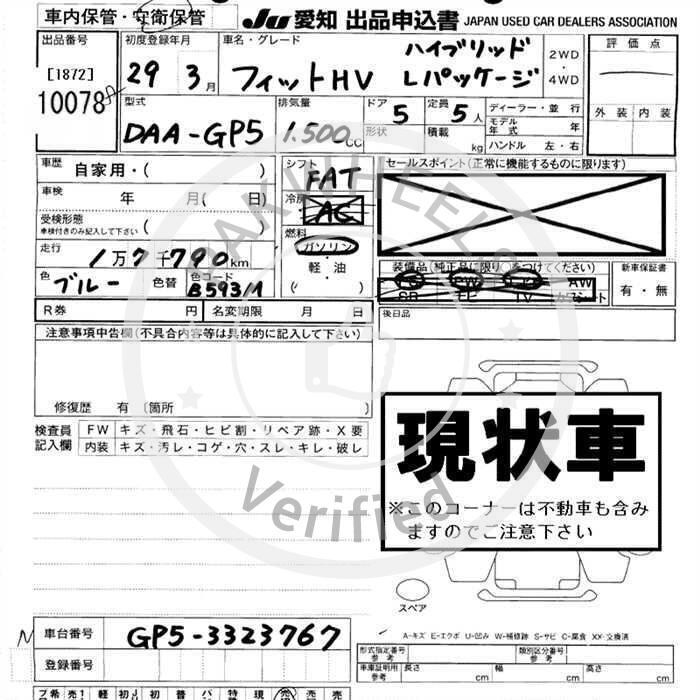 車内保管・安衛保管
JU 愛知 出品申込書 JAPAN USED CAR DEALERS ASSOCIATION
出品番号
[1872]
10078
初度登録年月
29 3月
車名・グレード
フィットHV
ハイブリッド
Lパッケージ
2WD
・
4WD
評価点
外装 内装
型式
DAA-GP5
排気量
1.500cc
ドア 5
形状
定員 5人
積載 kg
ディーラー・並行
モデル年式 年
ハンドル 左・右
車歴 自家用・( )
車検 年 月( 日)
受検形態
車検付きのみ記入して下さい ( )
走行 1万7千790km
色 ブルー 色替 色コード B593M
シフト
FAT
冷房
AC
燃料
ガソリン
・
軽油
( )
セールスポイント(正常に機能するものに限ります)
装備品(純正品に限り○をつけてください)
AW
SR ナビ TV カワシート
新車保証書
有・無
後日品
R券 円 名変期限 月 日
注意事項申告欄(不具合内容等は具体的に記入して下さい)
修復歴 有 〔箇所 〕
検査員記入欄
FW キズ・飛石・ヒビ割・リペア跡・X要
内装 キズ・汚レ・コゲ・穴・スレ・キレ・破レ
現状車
※このコーナーは不動車も含み
ますのでご注意下さい
PAKWHEELS
Verified
スペア
A-キズ E-エクボ U-凹み W-補修跡 S-サビ C-腐食 XX-交換済
N
車台番号 GP5-3323767
登録番号
形式指定番号参考 類別区分番号参考
車庫証明用参考 長さ cm 幅 cm 高さ cm